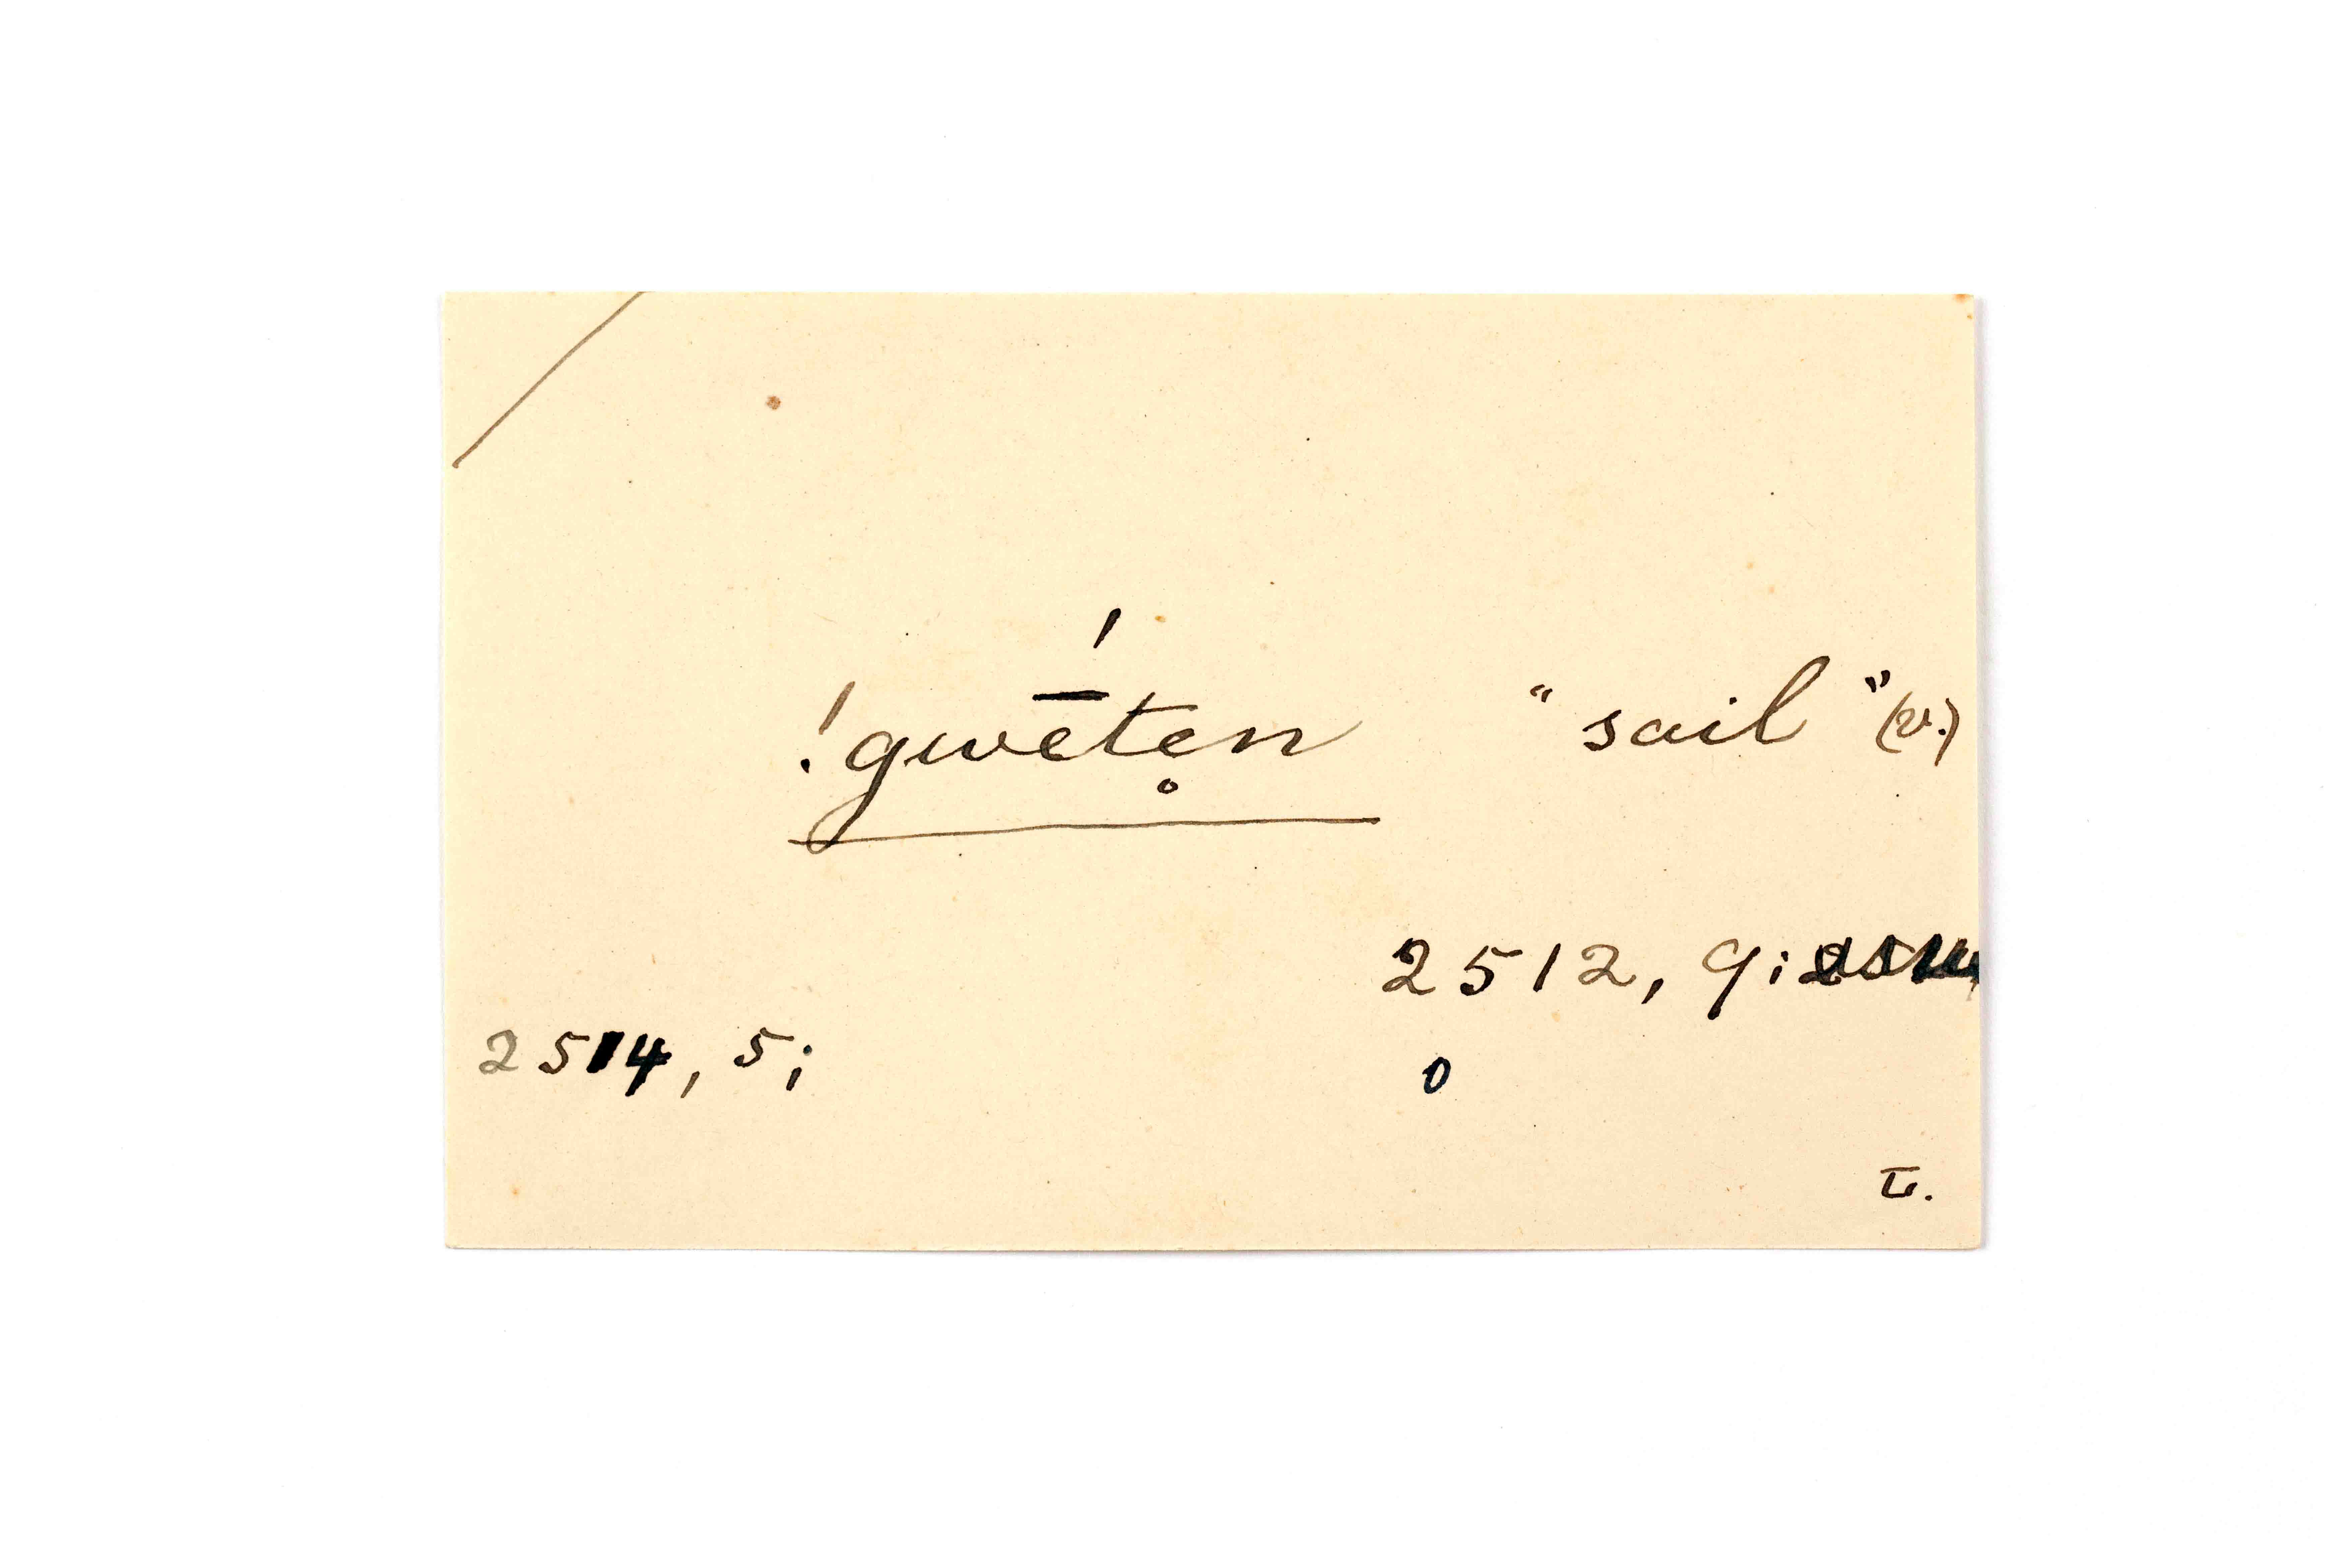 !gwḗte̥n "sail" (v.)
2512, 9;
2514, 5; 0
L.